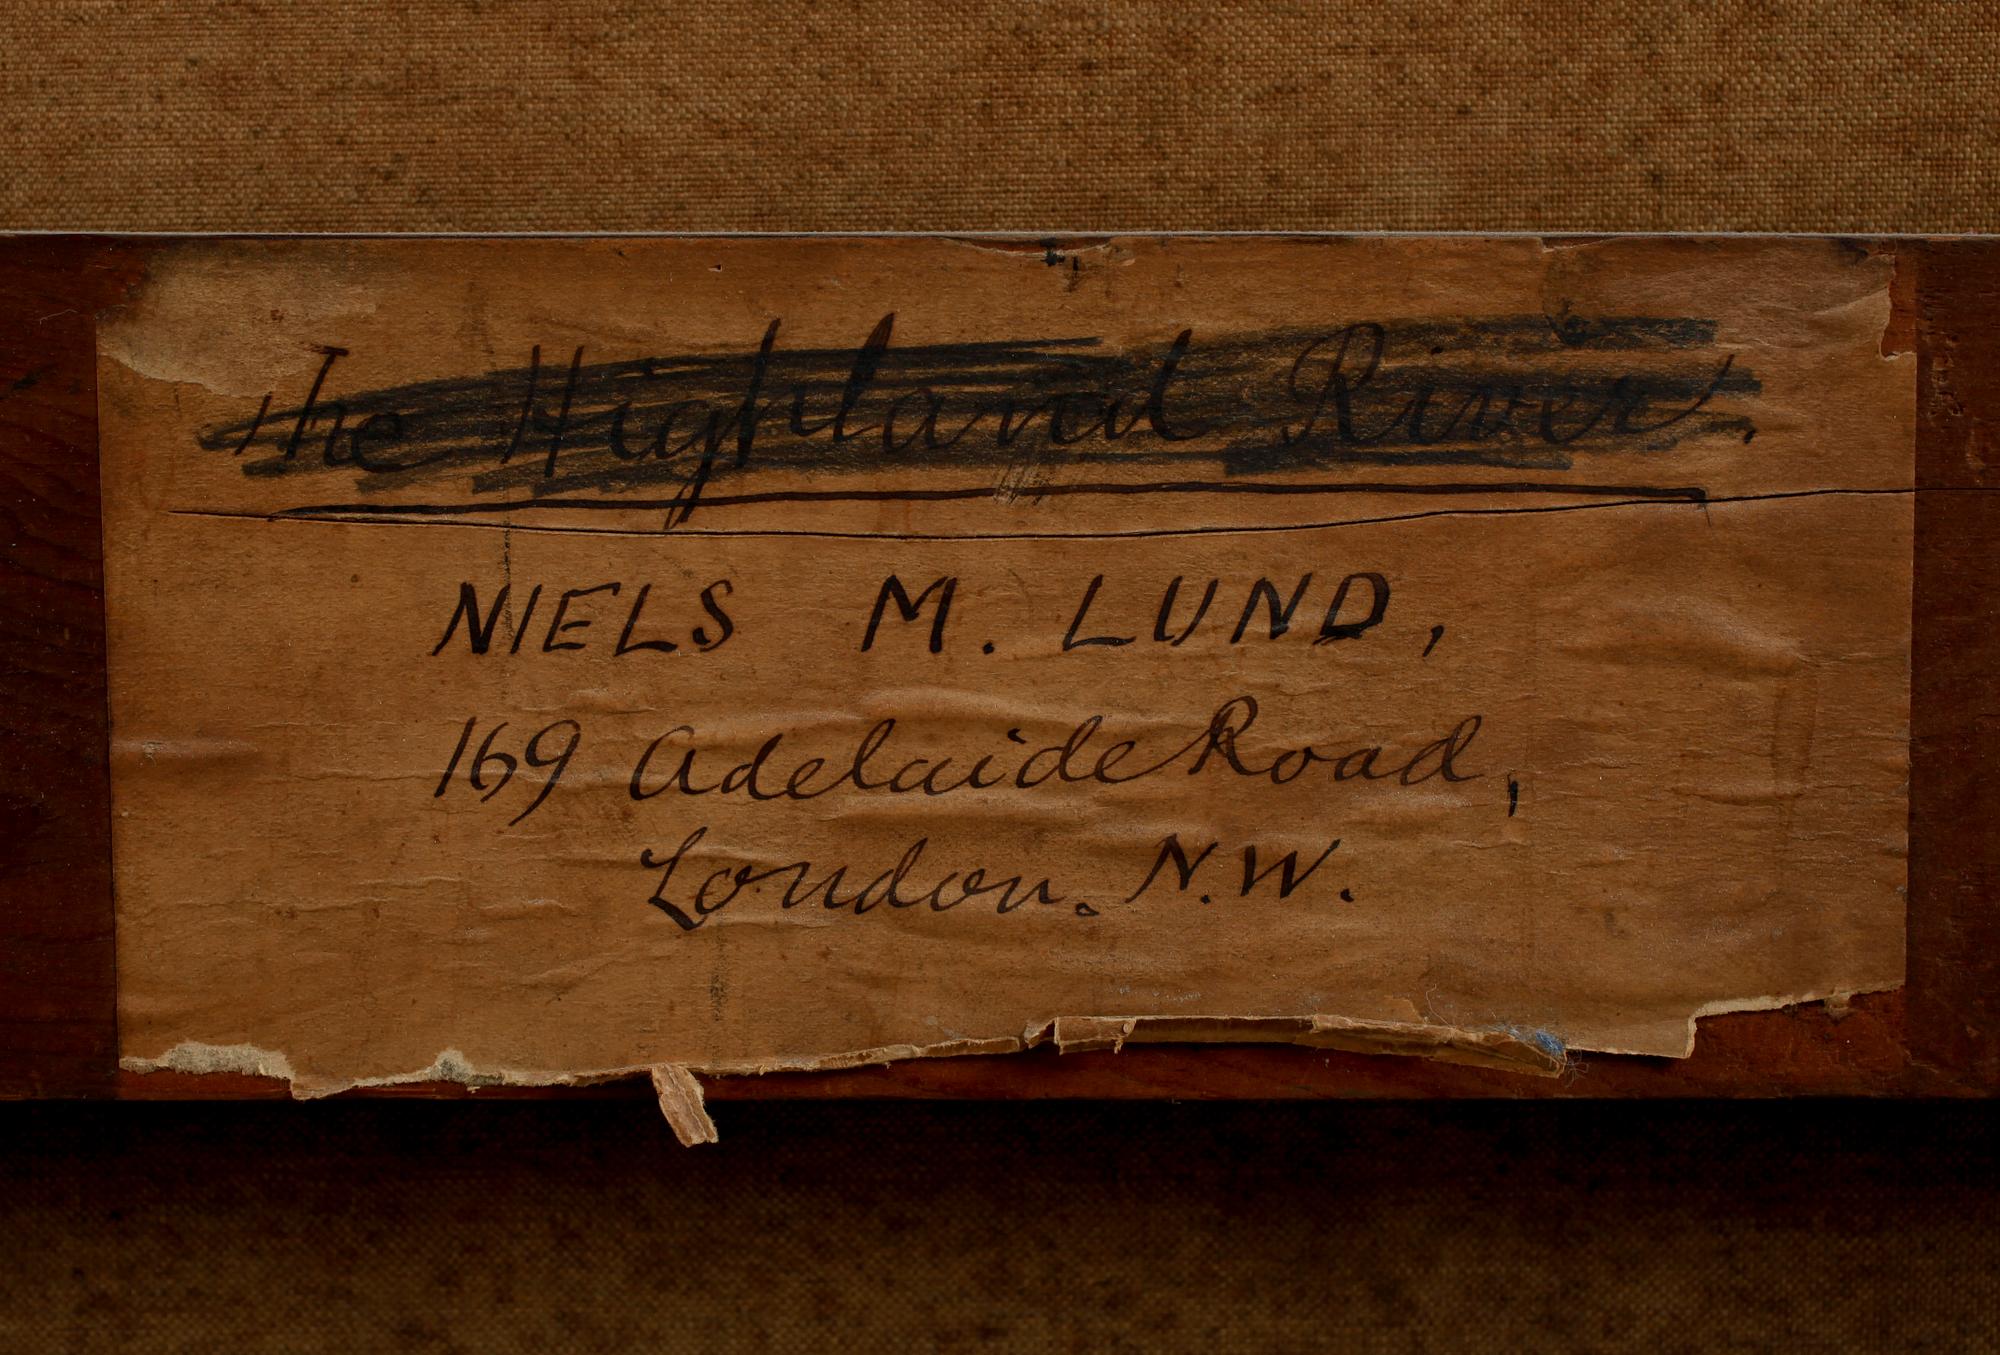 The Highland River.
NIELS M. LUND,
169 Adelaide Road,
London. N.W.